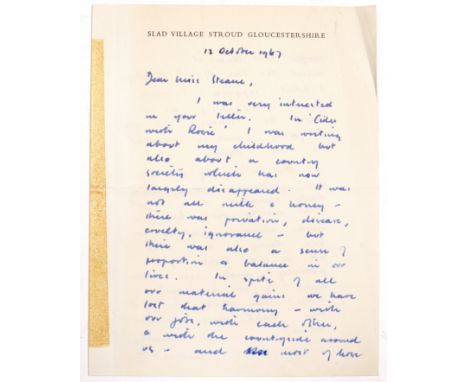 SLAD VILLAGE STROUD GLOUCESTERSHIRE
12 October 1967
Dear Miss Steane,
I was very interested
in your letter. In 'Cider
with Rosie' I was writing
about my childhood but
also about a country
society which has now
largely disappeared. It was
not all milk & honey -
there was privation, disease,
cruelty, ignorance - but
there was also a sense of
proportion & balance in our
lives. In spite of all
our material gains we have
lost that harmony - with
our jobs, with each other,
& with the countryside around
us - and most of how